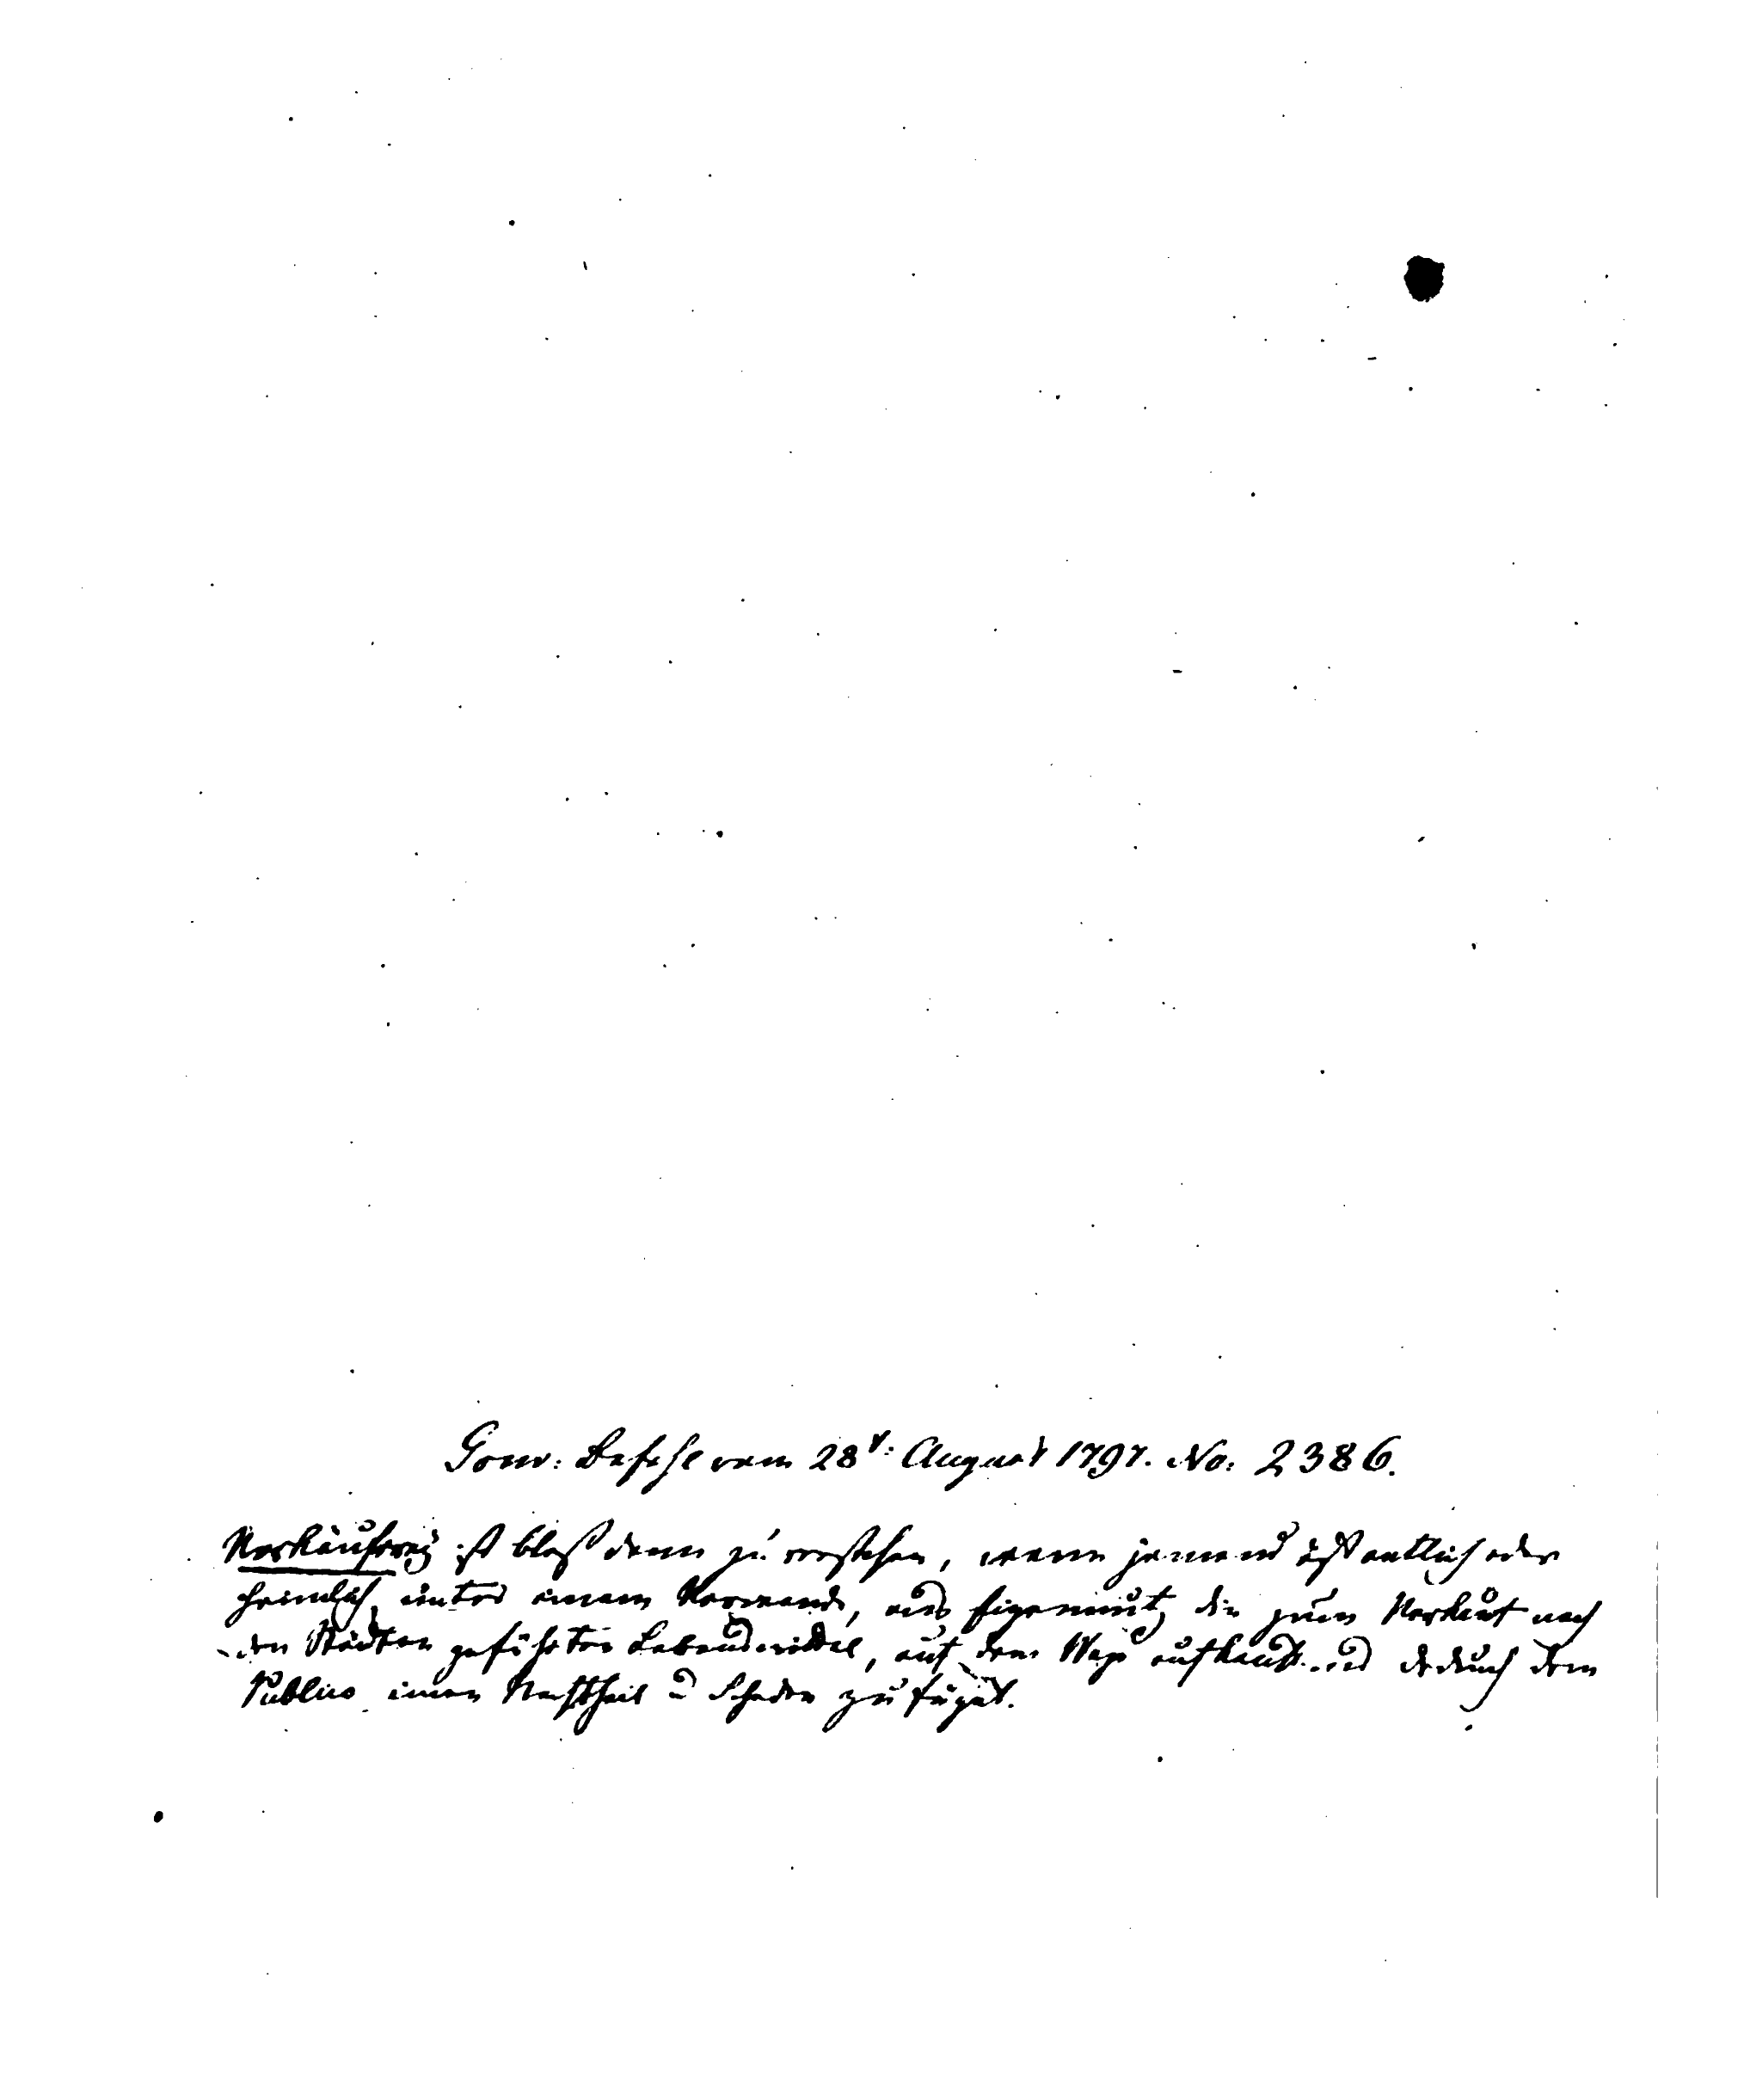 Gouv: Befehl vom 28t: August 1797. No: 2386.
Vorkäuferey ist bloß denn zu verstehen, wenn jemand öffentlich oder
heimlich, unter einem Vorwande, aus Eigennutz die zum Verkauf nach
den Städten geführten Lebensmittel, auf dem Wege aufkauft und dadurch dem
Publico einen Nachtheil u Schaden zufügt.